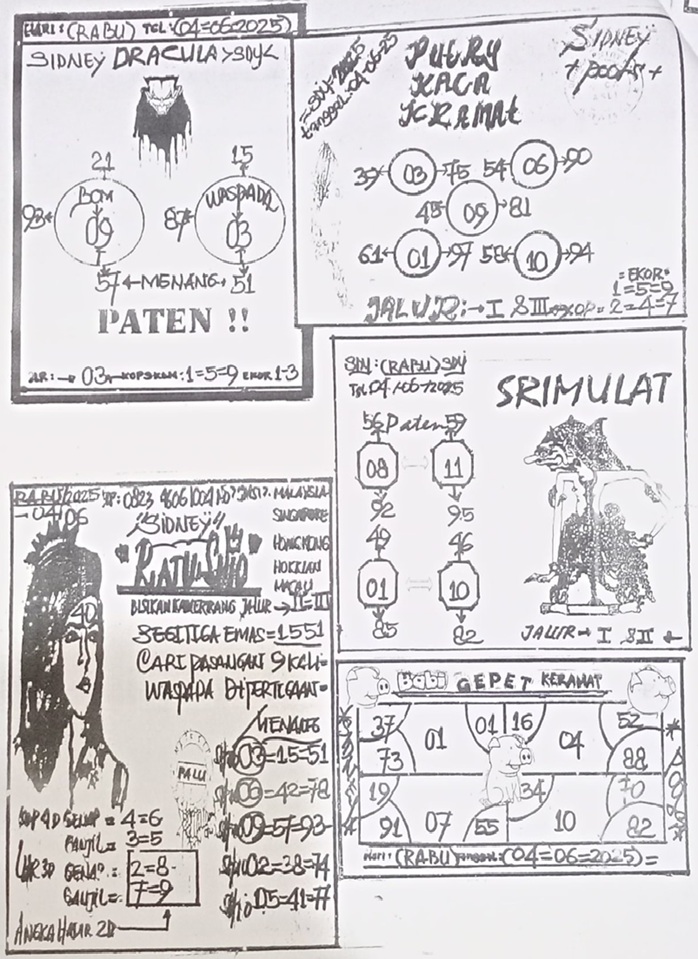 HARI : (RABU) TGL : (04=06=2025)
SIDNEY DRACULA > SDY <
21 15
BOM WASPADA
93 09 87 03
57 ← MENANG → 51
PATEN !!
03 KOP & KAM : 1=5=9 EKOR 1-3
=SDY=2025
tanggal:04-06-25
PUTRY
KACA
KRAMAT
SIDNEY
+ pools +
39 03 75 54 06 90
45 09 81
61 01 97 58 10 94
=EKOR=
1=5=9
JALUR : → I & III KOP = 2=4=7
SDY : (RABU) SDY
TGL 04/06-2025
SRIMULAT
56 Paten 59
08 11
92 95
49 46
01 10
85 82
JALUR → I & II
RABU/2025 HP: 0823 4606 1004
- 04/06
MALAYSIA
SINGAPORE
HONGKONG
HOKKIAN
MACAU
"SIDNEY"
"RATU
BISIKAN JALUR → II=III
40
SEGITIGA EMAS = 1551
CARI PASANGAN
WASPADA DIPERTIGAAN=
MENANG
PALU
03=15=51
06=42=78
09=57=93
02=38=74
05=41=77
GENAP = 4=6
GANJIL = 3=5
GENAP = 2=8
GANJIL = 7=9
ANGKA HADIR 2D
Babi GEPET KERAMAT
37 01 01 16 04 52
73 88
19 34 70
91 07 55 10 82
HARI : (RABU) TANGGAL : (04=06=2025) =